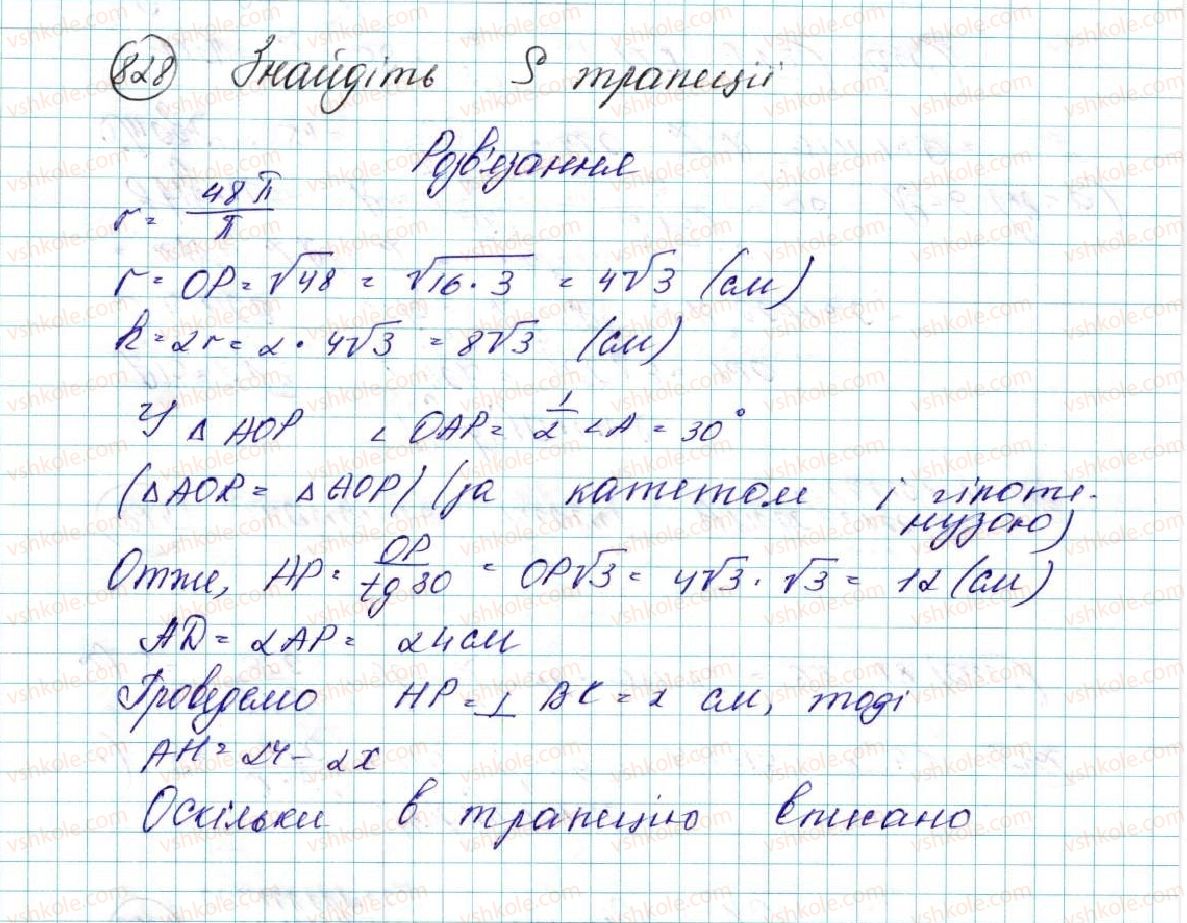 828 Знайдіть S трапеції
Розв'язання
r = 48π/π
r = OP = √48 = √16·3 = 4√3 (см)
h = 2r = 2 · 4√3 = 8√3 (см)
У △ AOP ∠ OAP = 1/2 ∠A = 30°
(△AOK = △AOP) (за катетом і гіпоте-
нузою)
Отже, AP = OP/tg 30 = OP√3 = 4√3 · √3 = 12 (см)
AD = 2AP = 24 см
Проведемо HP = ⊥ BC = x см, тоді
AH = 24 - 2x
Оскільки в трапецію вписано